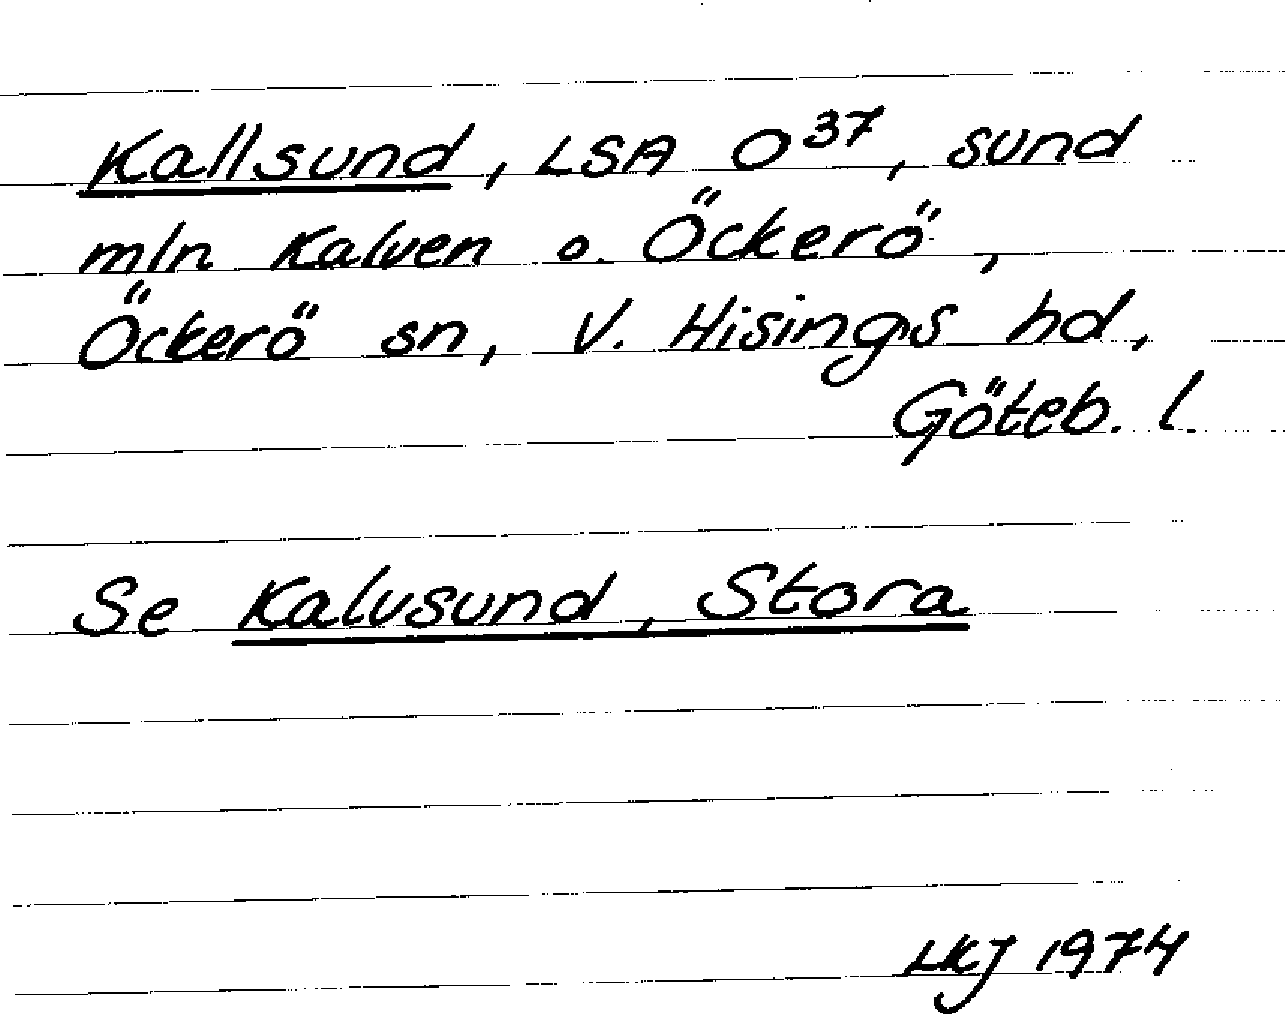 Kallsund, LSA O³⁷, sund
mln Kalven o. Öckerö,
Öckerö sn, V. Hisings hd,
Göteb. l.
Se Kalvsund, Stora
LKJ 1974